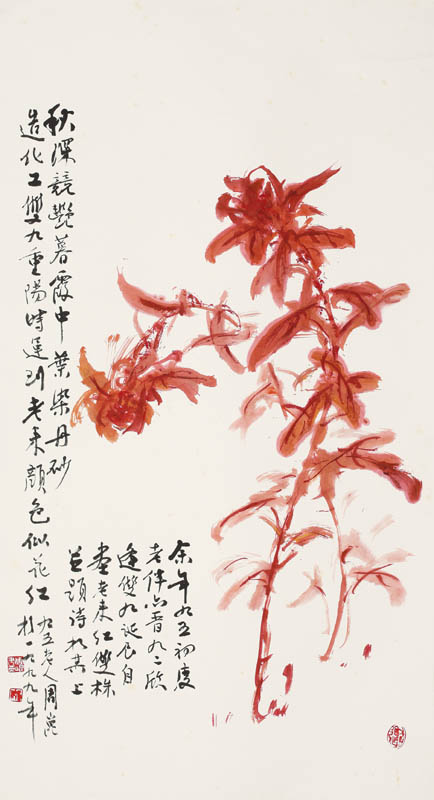 余年九五初度
老伴亦晉九二欣
逢雙九誕辰自
畫老來紅雙株
並題詩於其上
秋深競艷暮霞中葉染丹砂
造化工雙九重陽時運到老來顏色似花紅
九五老人周
於一九九九年